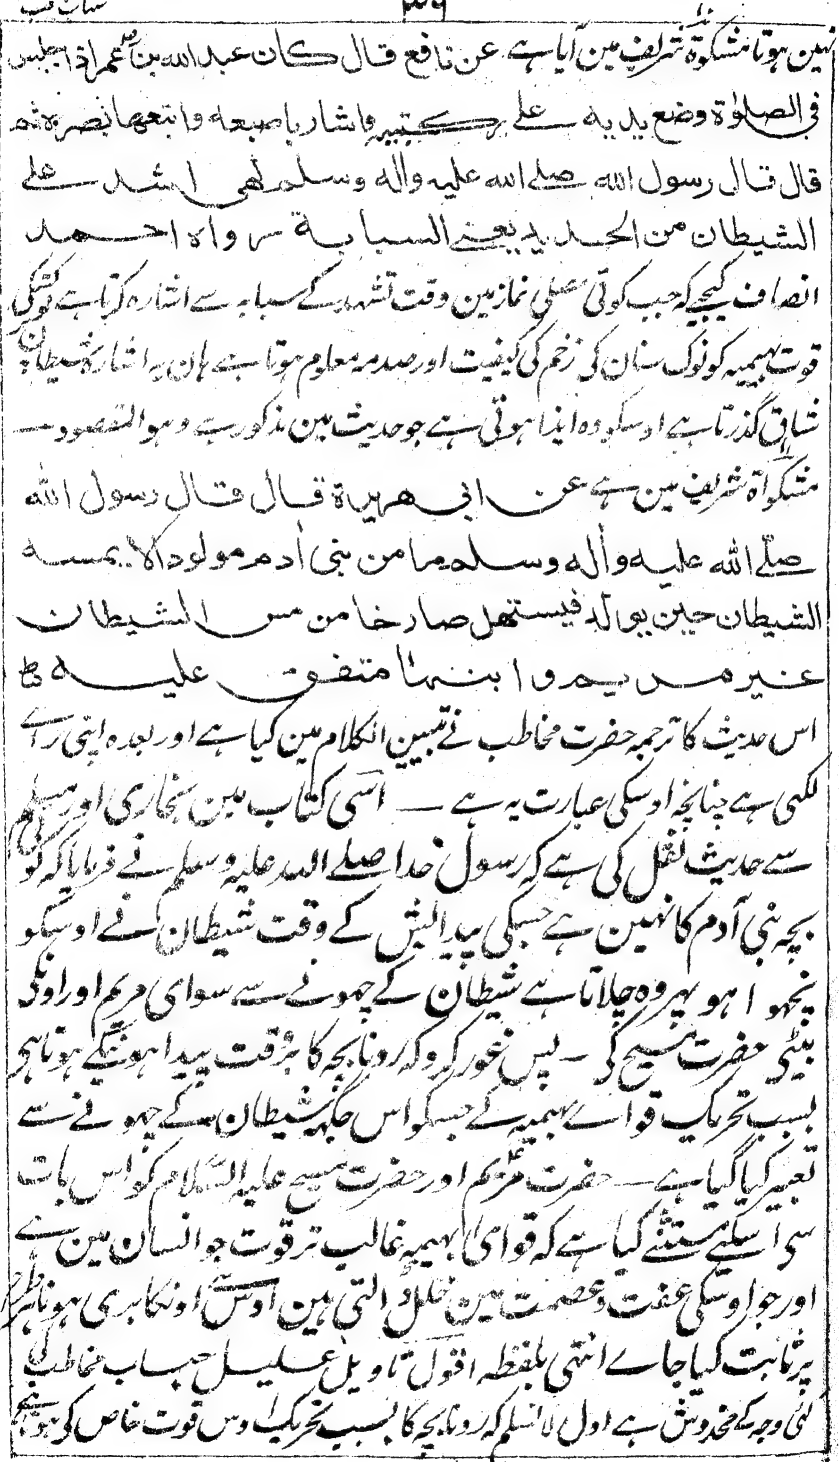 ۳۴۹
نہین ہوتا مشکوٰۃ شریف مین آیا ہے عن نافع قال کان عبد اللہ بن عمر اذا جلس
فی الصلوٰۃ وضع یدیہ علے رکبتیہ واشار باصبعہ واتبعہا بصرہ ثم
قال قال رسول اللہ صلے اللہ علیہ وآلہ وسلم لھی اشد علے
الشیطان من الحدید یعنے السبابۃ رواہ احمد
انصاف کیجیے کہ جب کوئی مصلی نماز مین وقت تشہد کے سبابہ سے اشارہ کرتا ہے تو کسکی
قوت بہیمیہ کو نوک سنان کی زخم کی کیفیت اور صدمہ معلوم ہوتا ہے ہان یہ اشارہ شیطان پر
شاق گذرتا ہے اوسکو وہ ایذا ہوتی ہے جو حدیث مین مذکور ہے وہو المقصود —
مشکوٰۃ شریف مین ہے عن ابی ھریرۃ قال قال رسول اللہ
صلّے اللہ علیہ وآلہ وسلم ما من بنی اٰدم مولود الا یمسہ
الشیطان حین یولد فیستھل صارخا من مس الشیطان
غیر مریم وابنہا متفق علیہ
اس حدیث کا ترجمہ حضرت مخاطب نے تبیین الکلام مین کیا ہے اور بعدہ اپنی راے
لکھی ہے چنانچہ اوسکی عبارت یہ ہے — اسی کتاب مین بخاری اور مسلم
سے حدیث نقل کی ہے کہ رسول خدا صلے اللہ علیہ وسلم نے فرمایا کہ کوئی
بچہ بنی آدم کا نہین ہے جسکی پیدائش کے وقت شیطان نے اوسکو
نچھوا ہو پہر وہ چلاتا ہے شیطان کے چہونے سے سوای مریم اور اونکی
بیٹی حضرت مسیح کی – پس غور کرو کہ رونا بچہ کا بوقت پیدا ہونیکے ہوتا ہی
بسبب تحریک قواے بہیمیہ کے جسکو اس جگہہ شیطان کے چہونے سے
تعبیر کیا گیا ہے — حضرت مریم اور حضرت مسیح علیہ السلام کو اس بات
سی اسلیے مستثنے کیا ہے کہ قواے بہیمیہ غالب تر قوت جو انسان مین ہے
اور جو اوسکی عفت و عصمت مین خلل ڈالتی ہین اوس سے اونکا بری ہونا
پر ثابت کیا جاے انتہی بلفظہ اقول تاویل علیل جناب مخاطب کی
کئی وجہ کے مخدوش ہے اول لا نسلم کہ رونا بچہ کا بسبب تحریک اوس قوت خاص کی ہو